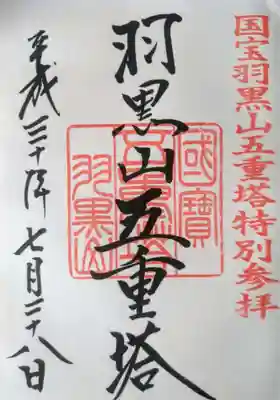 国宝羽黒山五重塔特別参拝
羽黒山五重塔
國寶
五重塔
羽黒山
平成三十年七月二十八日